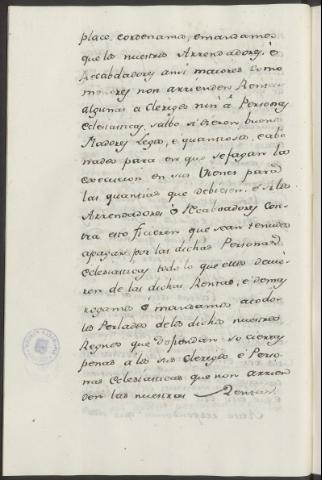 place, e ordenamos, e mandamos
que los nuestros Arrendadores, é
Recabdadores ansi maiores como
menores non arrienden Rentas
algunas a Clerigos nin â Personas
eclesiasticas, salbo si dieren buenos
fiadores Legos, e quantiosos, e abo
nados para en que se faga la
execucion en sus bienes para
las quantias que debieren, é si los
Arrendadores ó Recabdadores con
tra esto ficieren que sean tenudos
a pagar por las dichas Personas
eclesiasticas todo lo que ellos devie
ren de las dichas Rentas, e demas
rogamos é mandamos a todos
los Perlados de los dichos nuestros
Regnos que defiendan so ciertas
penas á los sus clerigos é Perso
nas eclesiasticas que non arrien
den las nuestras Rentas